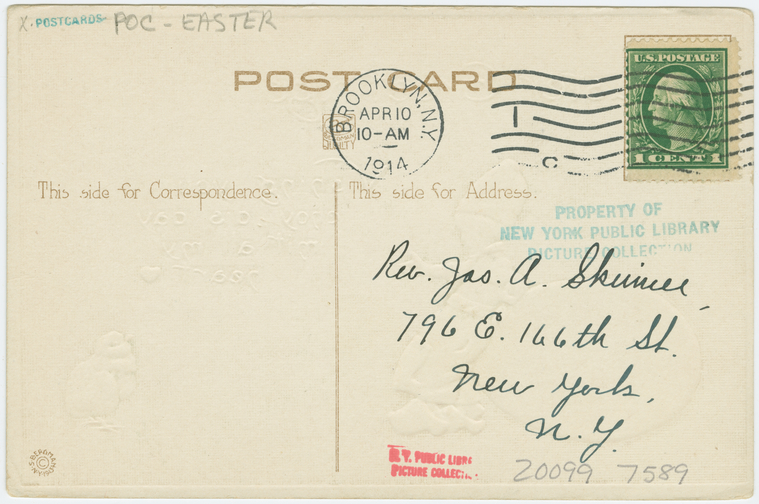 X · POSTCARDS- POC - EASTER
POST CARD
BROOKLYN, N.Y.
APR 10
10-AM
1914
1
C
U.S. POSTAGE
1 CENT 1
QUALITY
This side for Correspondence.
This side for Address.
PROPERTY OF
NEW YORK PUBLIC LIBRARY
PICTURE COLLECTION
Rev. Jas. A. Skinner
796 E. 166th St.
New York,
N.Y.
S. BERGMAN N.Y. ©
N. Y. PUBLIC LIBR
PICTURE COLLECTI
20099 7589